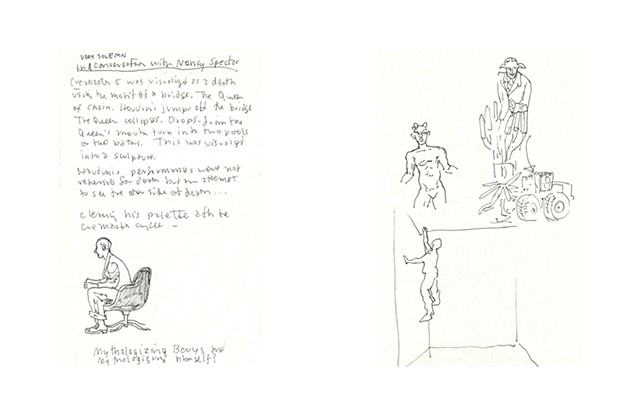 VERY SOLEMN
In a conversation with Nancy Spector
Cremaster 5 was visualized as a death
using the motif of a bridge. The Queen
of Chain. Houdini jumps off the bridge
The Queen collapses. Drops from the
Queen's mouth turn into two pools
in the baths. This was visualized
into a sculpture.
Houdini's performances were not
rehearsals for death but an attempt
to see the other side of death...
clearing his palette after the
cremaster cycle –
Mythologizing Beuys and
mythologizing himself?